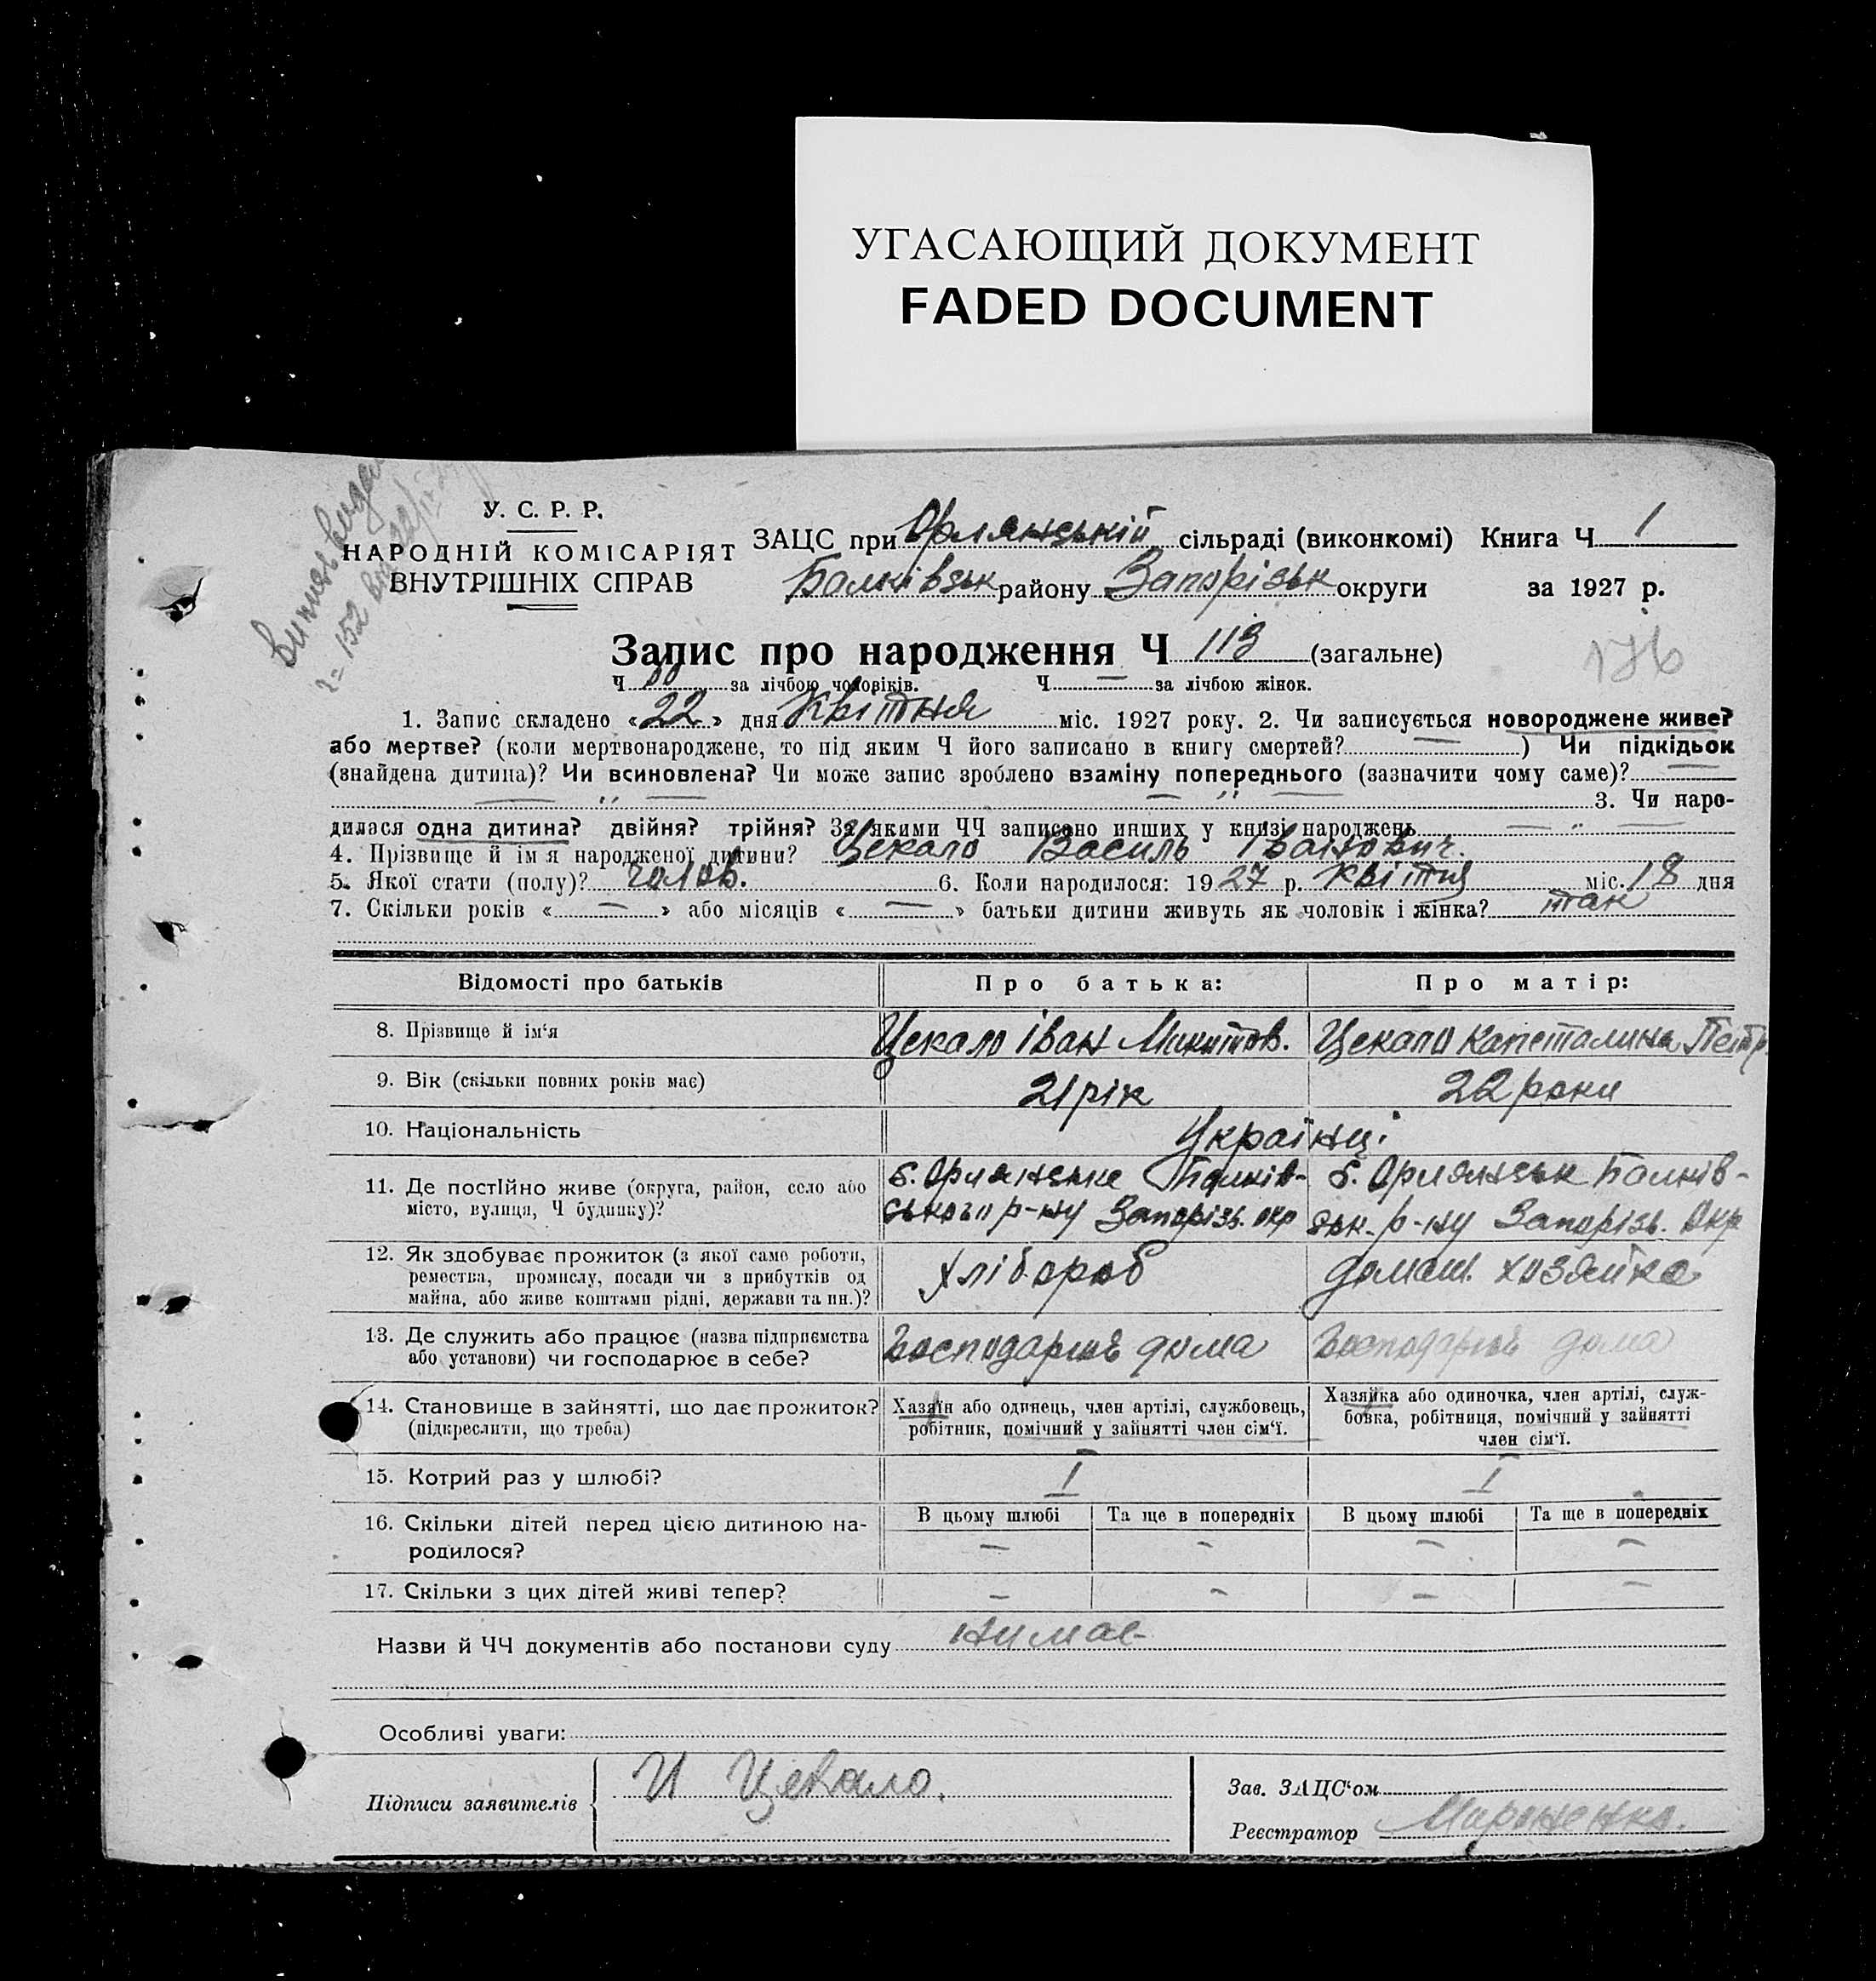 УГАСАЮЩИЙ ДОКУМЕНТ
FADED DOCUMENT
У. С. Р. Р.
НАРОДНІЙ КОМІСАРІЯТ
ВНУТРІШНІХ СПРАВ
ЗАЦС при Орлянській сільраді (виконкомі) Книга Ч 1
Балківськ району Запорізьк округи за 1927 р.
Запис про народження Ч 113 (загальне)
176
Ч 60 за лічбою чоловіків. Ч — за лічбою жінок.
1. Запис складено «22» дня Квітня міс. 1927 року. 2. Чи записується новороджене живе?
або мертве? (коли мертвонароджене, то під яким Ч його записано в книгу смертей? — ) Чи підкідьок
(знайдена дитина)? Чи всиновлена? Чи може запис зроблено взаміну попереднього (зазначити чому саме)? —
— „ — — „ — 3. Чи наро-
дилася одна дитина? двійня? трійня? За якими ЧЧ записано инших у книзі народжень — „ —
4. Прізвище й імя народженої дитини? Цекало Василь Іванович.
5. Якої стати (полу)? чолов. 6. Коли народилося: 1927 р. квітня міс. 18 дня
7. Скільки років « — » або місяців « — » батьки дитини живуть як чоловік і жінка? так
Відомості про батьків Про батька: Про матір:
8. Прізвище й ім'я Цекало Іван Микитов. Цекало Капеталина Петр.
9. Вік (скільки повних років має) 21 рік 22 роки
10. Національність Українці
11. Де постійно живе (округа, район, село або місто, вулиця, Ч будинку)?
с. Орлянське Балків-
ського р-ну Запорізь. окр
с. Орлянськ Балків-
ськ. р-ну Запорізь. Окр
12. Як здобуває прожиток (з якої саме роботи,
ремества, промислу, посади чи з прибутків од
майна, або живе коштами рідні, держави та ин.)?
Хлібороб домаш. хозяйка
13. Де служить або працює (назва підприємства
або установи) чи господарює в себе?
Господарює дома Господарює дома
14. Становище в зайнятті, що дає прожиток?
(підкреслити, що треба)
Хазяїн або одинець, член артілі, службовець,
робітник, помічний у зайнятті член сім'ї.
Хазяйка або одиночка, член артілі, служ-
бовка, робітниця, помічний у зайнятті
член сім'ї.
15. Котрий раз у шлюбі? I I
16. Скільки дітей перед цією дитиною на-
родилося?
В цьому шлюбі Та ще в попередніх В цьому шлюбі Та ще в попередніх
— — — —
17. Скільки з цих дітей живі тепер? — — — —
Назви й ЧЧ документів або постанови суду нимає
Особливі уваги:
Підписи заявителів И Цекало.
Зав. ЗАЦС'ом
Реєстратор Мироненко.